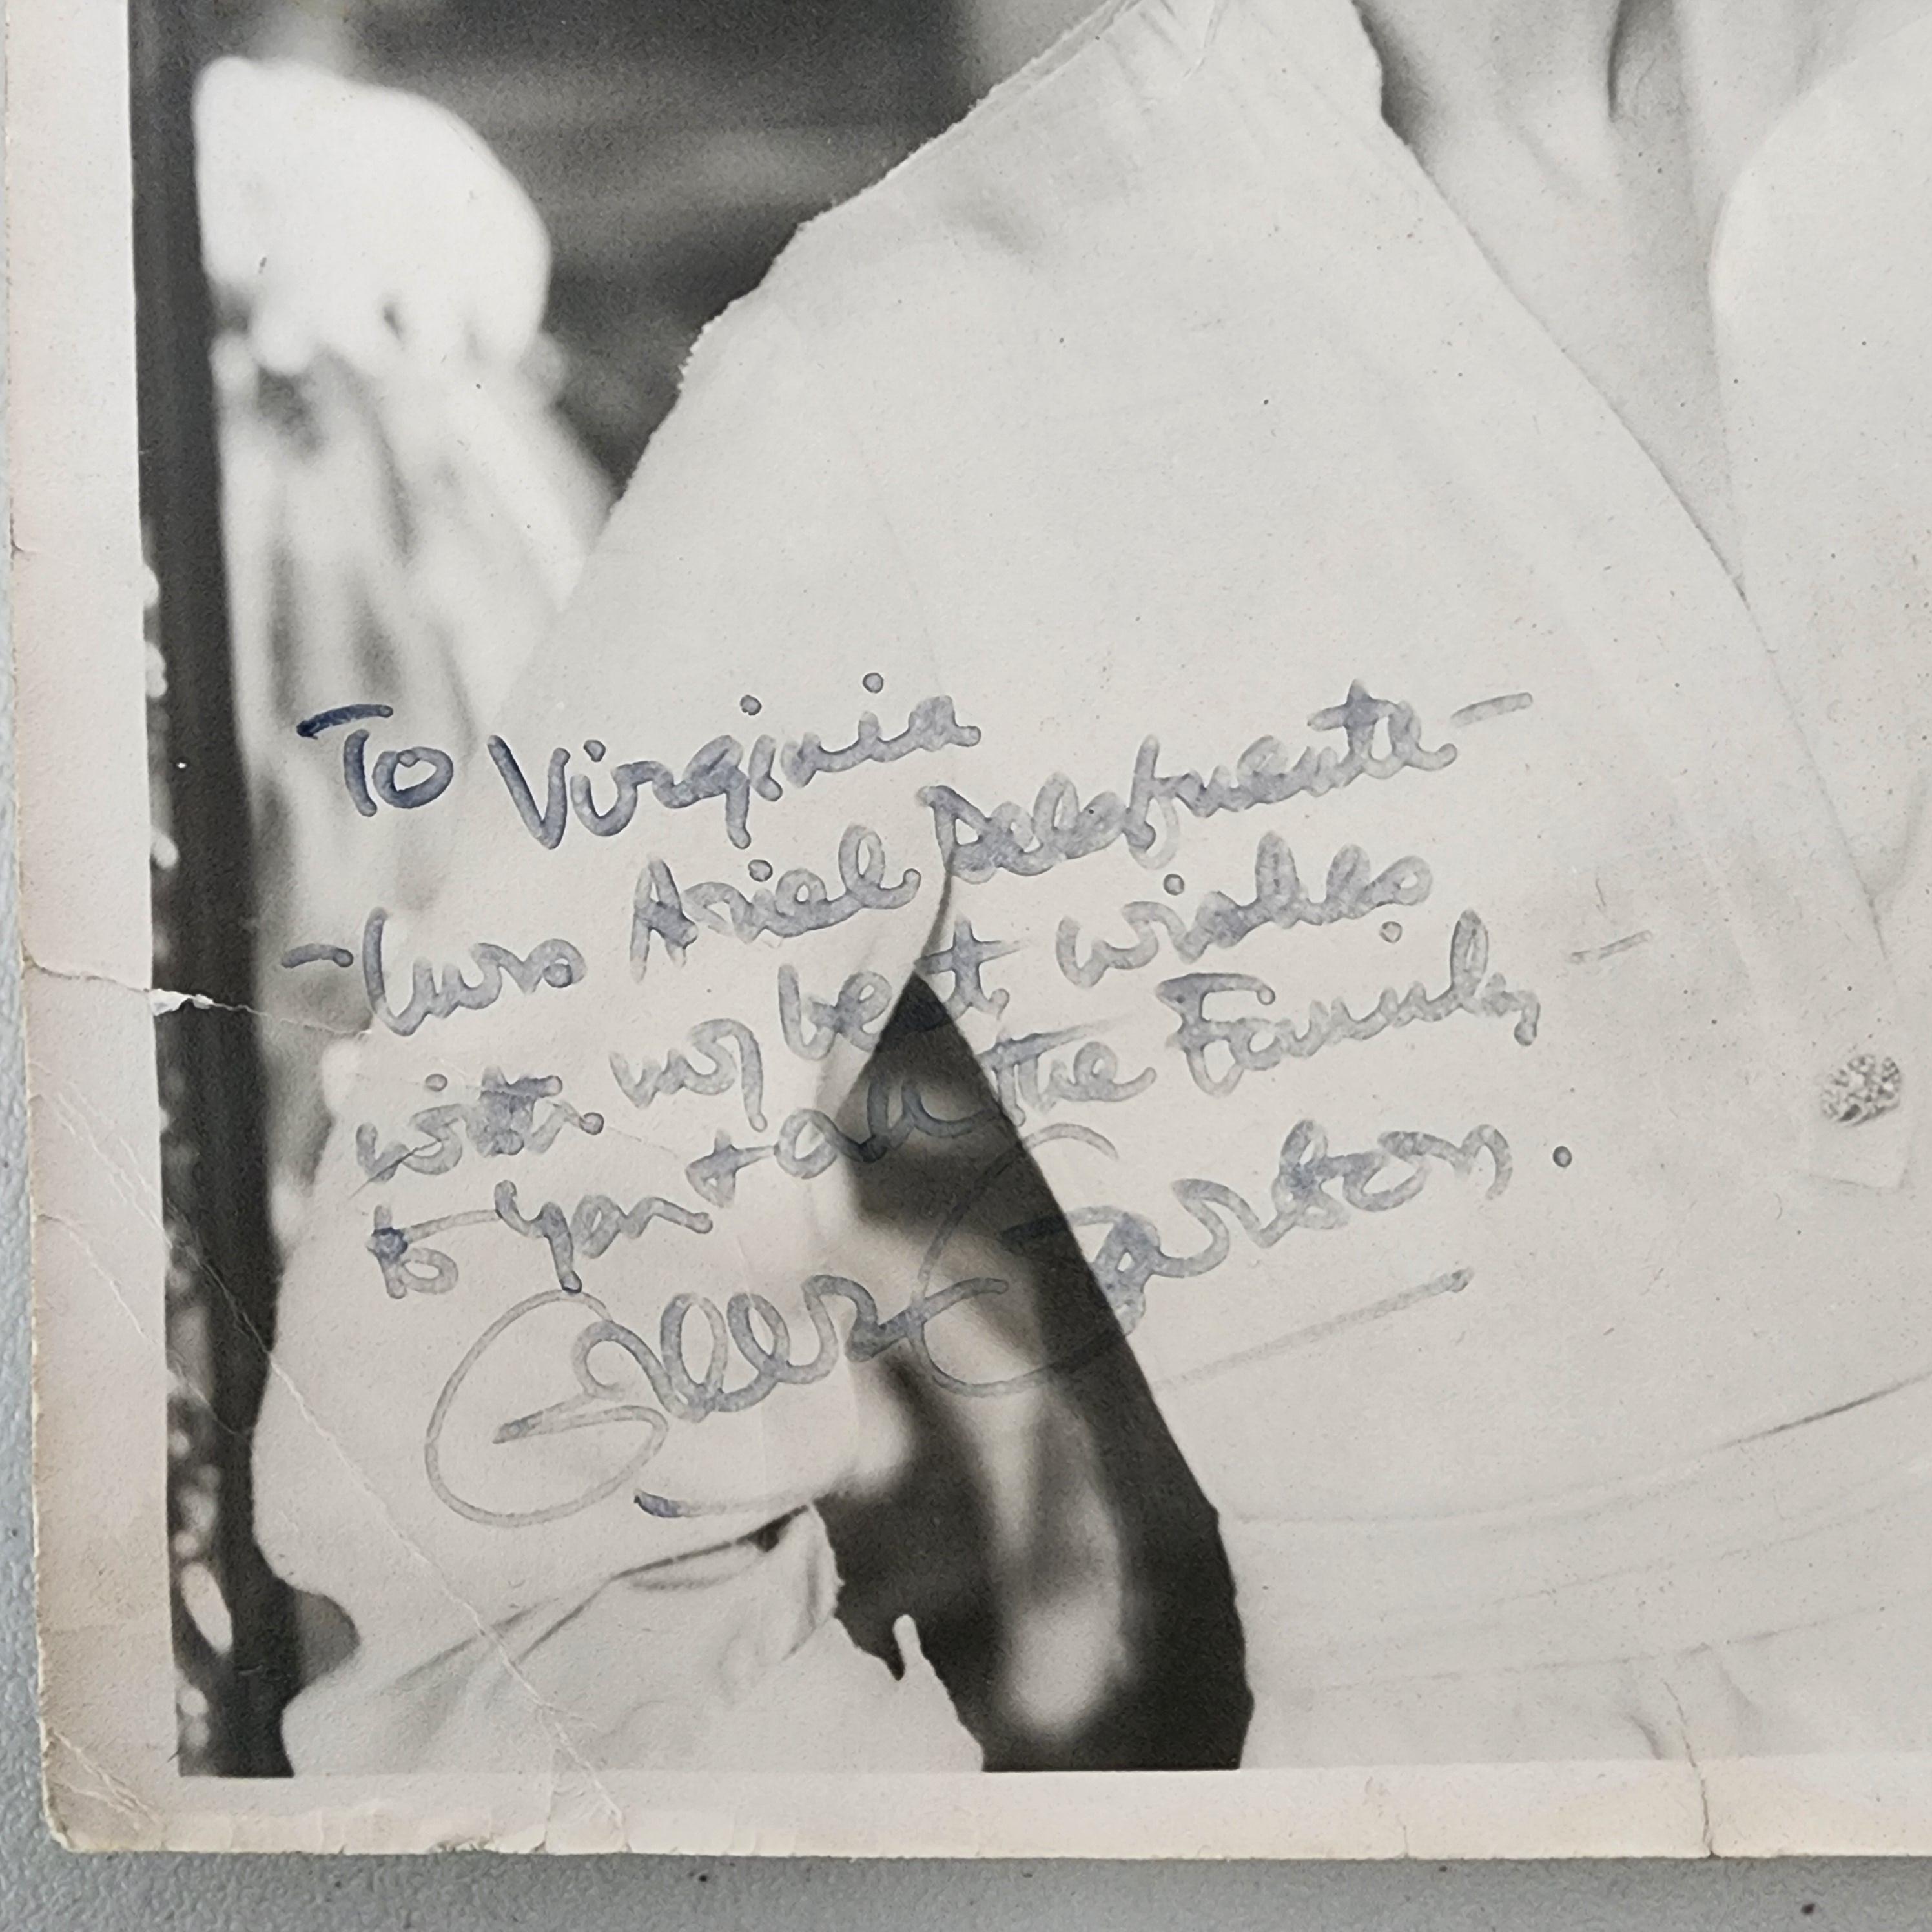 To Virginia
-Mrs Ariel Delafuente-
with my best wishes
to you + all the Family -
Greer Garson.